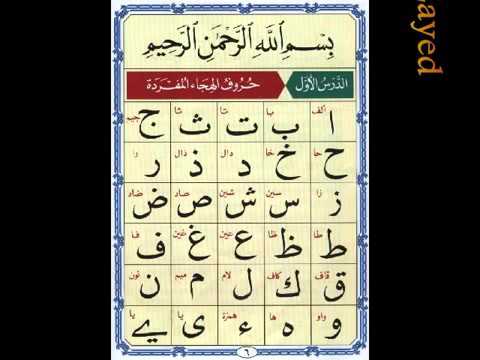 ayed
بِسْمِ اللَّهِ الرَّحْمَنِ الرَّحِيمِ
الدَّرْسُ الأَوَّل حُرُوفُ الهِجَاءِ المُفْرَدَة
ألف با تا ثا جيم
ا ب ت ث ج
حا خا دال ذال را
ح خ د ذ ر
زا سين شين صاد ضاد
ز س ش ص ض
طا ظا عين غين فا
ط ظ ع غ ف
قاف كاف لام ميم نون
ق ك ل م ن
واو ها همزة يا يا
و ه ء ى ے
٦